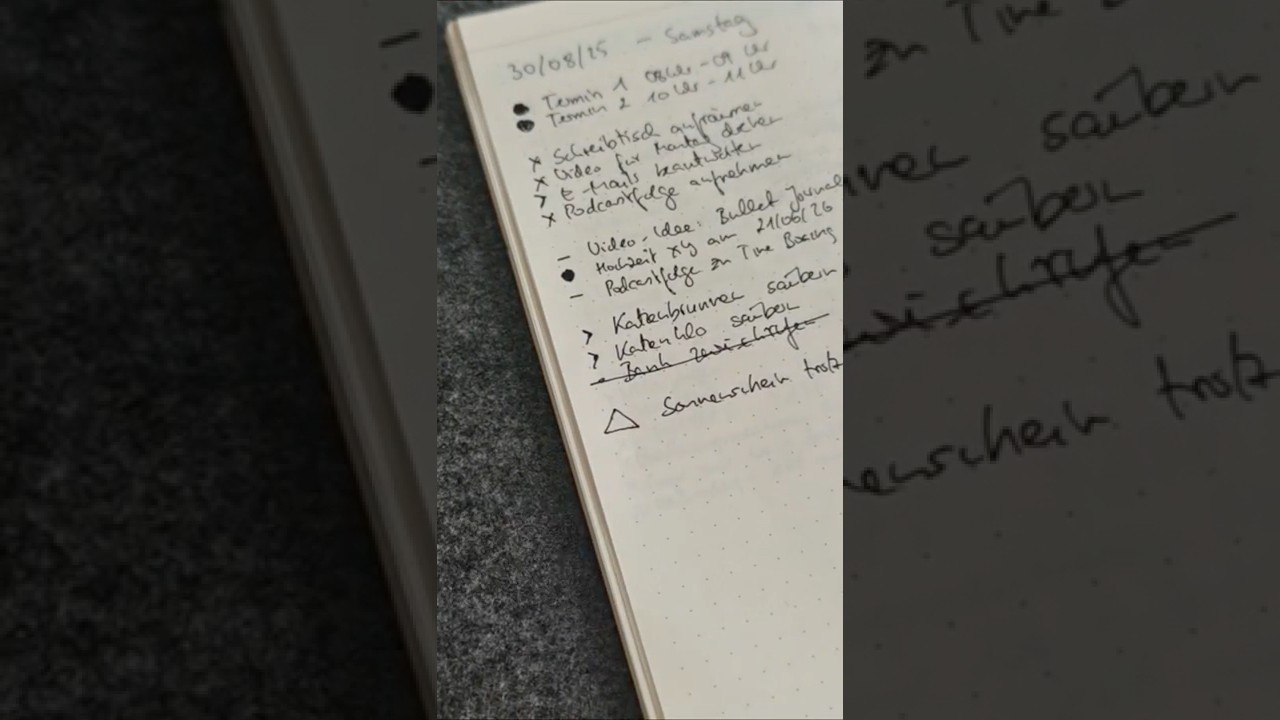 30/08/25 - Samstag
● Termin 1 08 Uhr - 09 Uhr
● Termin 2 10 Uhr - 11 Uhr
x Schreibtisch aufräumen
x Video für Montag drehen
> E-Mails beantworten
x Podcastfolge aufnehmen
- Video-Idee: Bullet Journal
● Hochzeit xy am 21/06/26
- Podcastfolge zu Time Boxing
> Katzenbrunnen säubern
> Katzenklo säubern
- Bank
△ Sonnenschein trotz